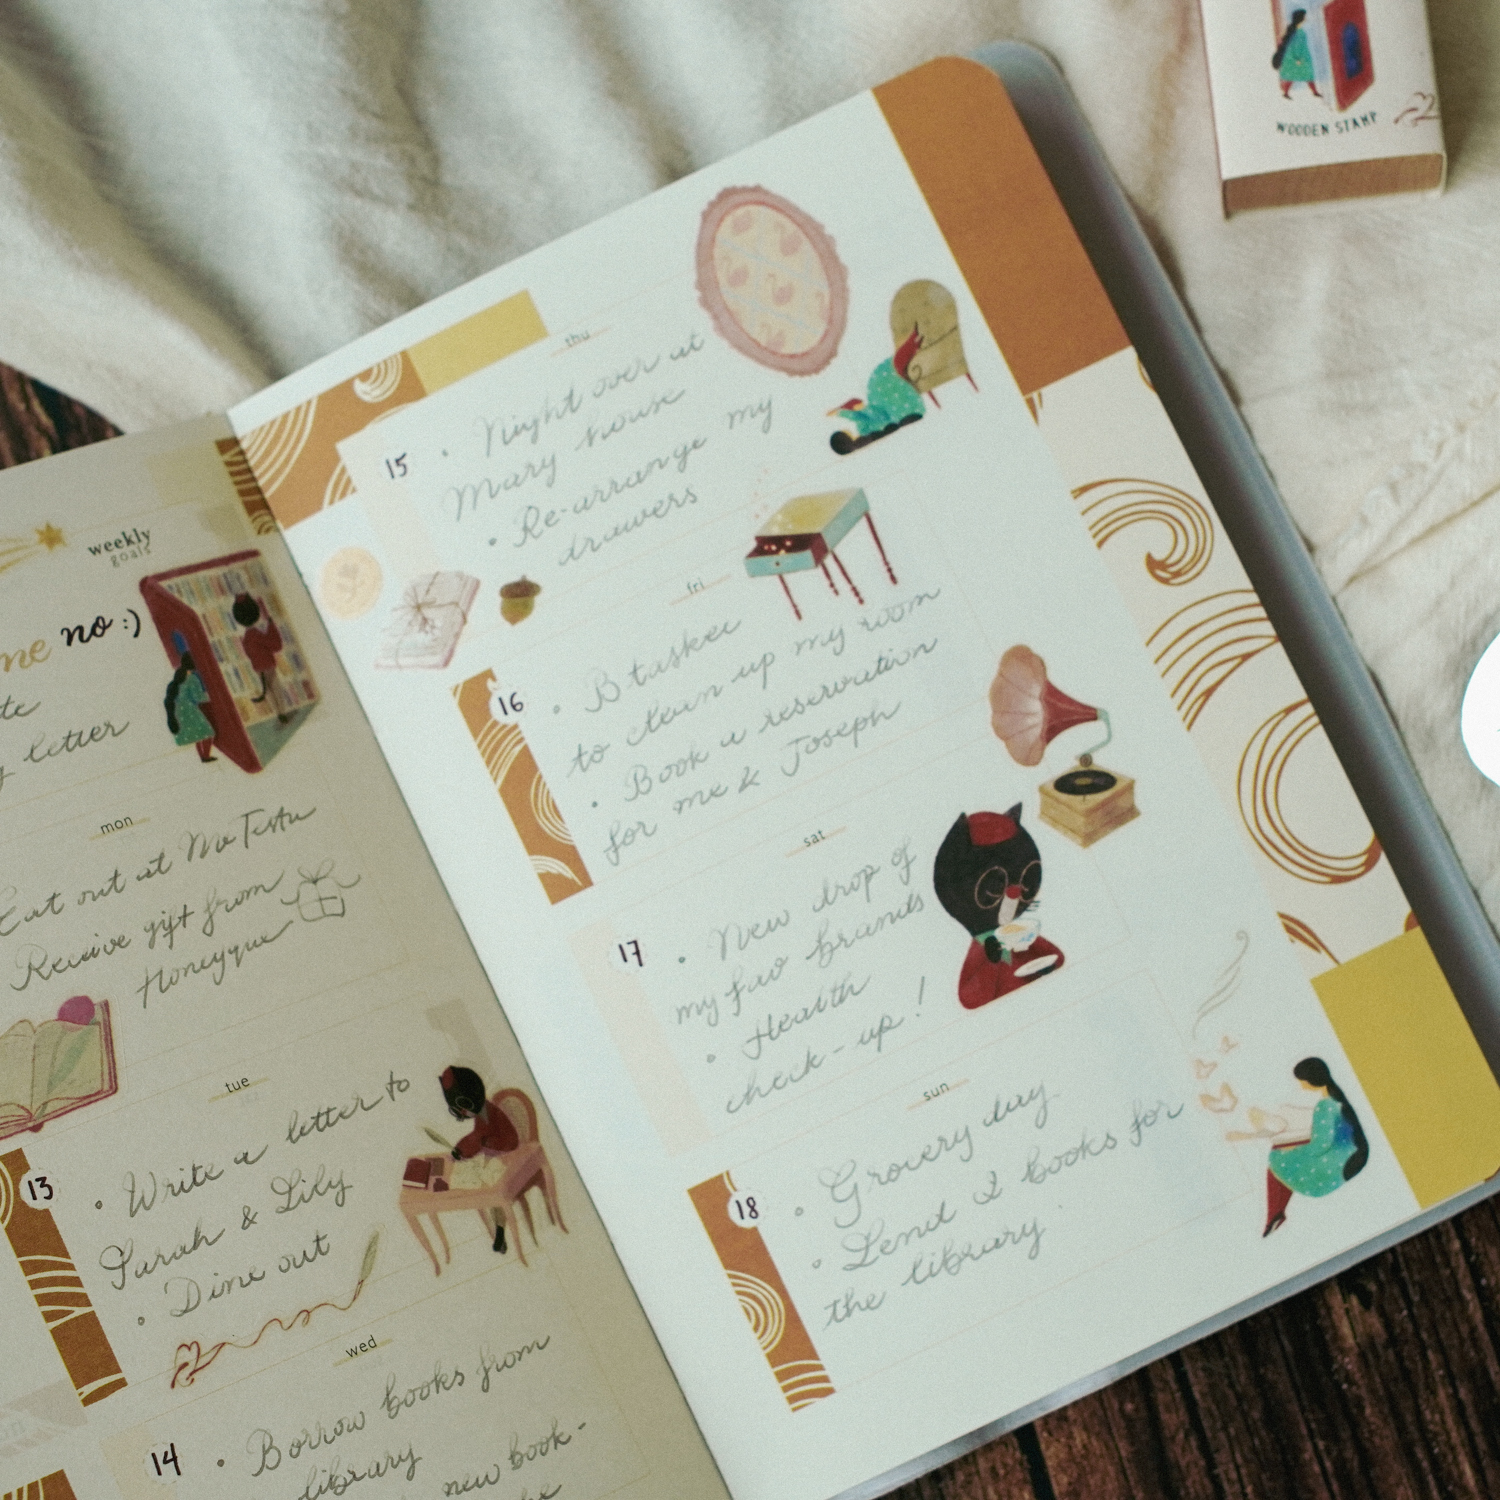 weekly
goals
me no :)
letter
mon
Eat out at
Receive gift from
Honeyque
tue
13
• Write a letter to
Sarah & Lily
• Dine out
wed
14
• Borrow books from
library
new book-
thu
15
• Night over at
Mary house
• Re-arrange my
drawers
fri
16
• B tasker
to clean up my room
• Book a reservation
for me & Joseph
sat
17
• New drop of
my fav brands
• Health
check-up!
sun
18
• Grocery day
• Lend 2 books for
the library
WOODEN STAMP